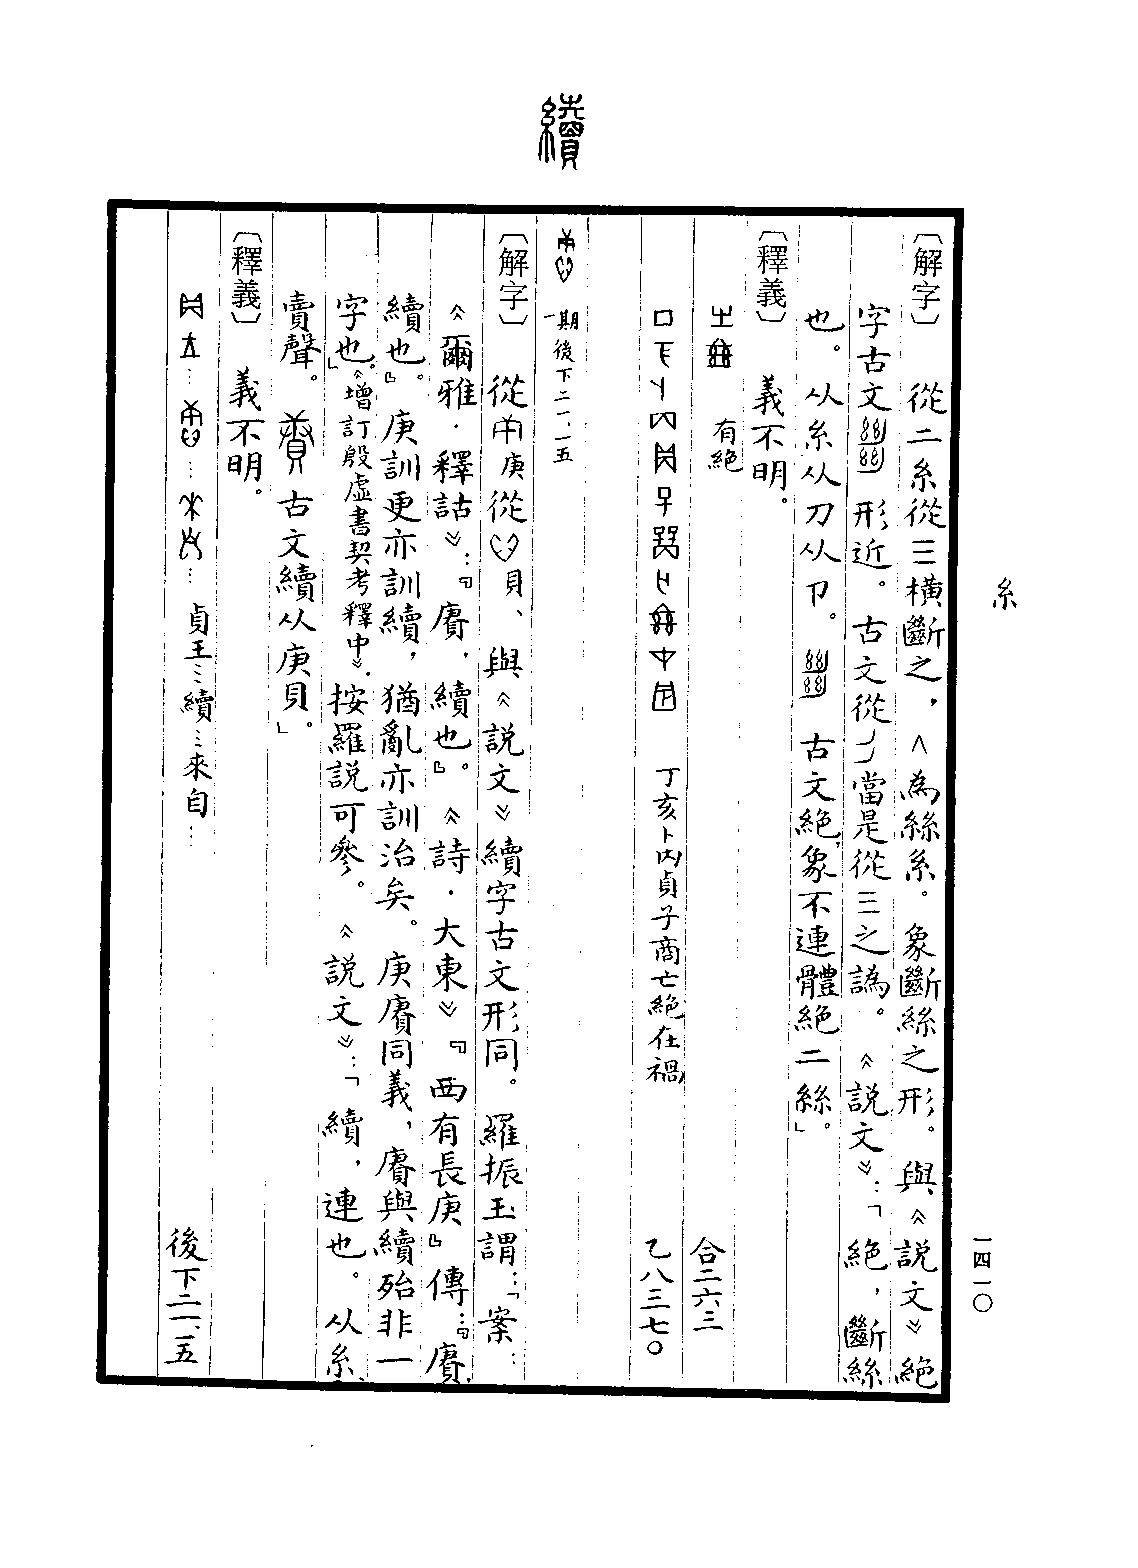 續
糸
一四一〇
〔解字〕 從二糸從三橫斷之，∧為絲糸。象斷絲之形。與《說文》絕
字古文形近。古文從當是從三之譌。《說文》：「絕，斷絲
也。从糸从刀从卩。古文絕，象不連體絕二絲。」
〔釋義〕 義不明。
有絕 合二六三
丁亥卜內貞子商亡絕在禍 乙八三七〇
一期後下二一、一五
〔解字〕 從庚從貝、與《說文》續字古文形同。羅振玉謂：「案：
《爾雅·釋詁》：『賡，續也。』《詩·大東》『西有長庚』傳：『賡，
續也。』庚訓更亦訓續，猶亂亦訓治矣。庚賡同義，賡與續殆非一
字也。」《增訂殷虛書契考釋中》.按羅說可參。《說文》：「續，連也。从糸，
賣聲。古文續从庚貝。」
〔釋義〕 義不明。
…貞王…續…來自… 後下二一、一五